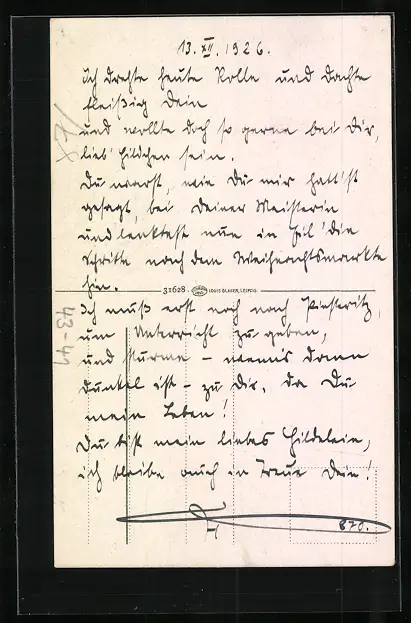 13. XII. 1926.
Ich drehte heute Rolle und dachte
fleißig Dein
und wollte doch so gerne bei Dir,
lieb' Hildchen sein.
Du warst, wie Du mir hatt'st
gesagt, bei Deiner Meisterin
und lenktest nun in Eil' die
Schritte nach dem Weihnachtsmarkte
hin.
31628. LOUIS GLASER, LEIPZIG
Ich muß erst noch nach Piesteritz,
um Unterricht zu geben,
und sturme – wenns dann
dunkel ist – zu Dir, da Du
mein Leben!
Du bist mein liebes Hildelein,
ich bleibe auch in Treue Dein!
870.
43-41